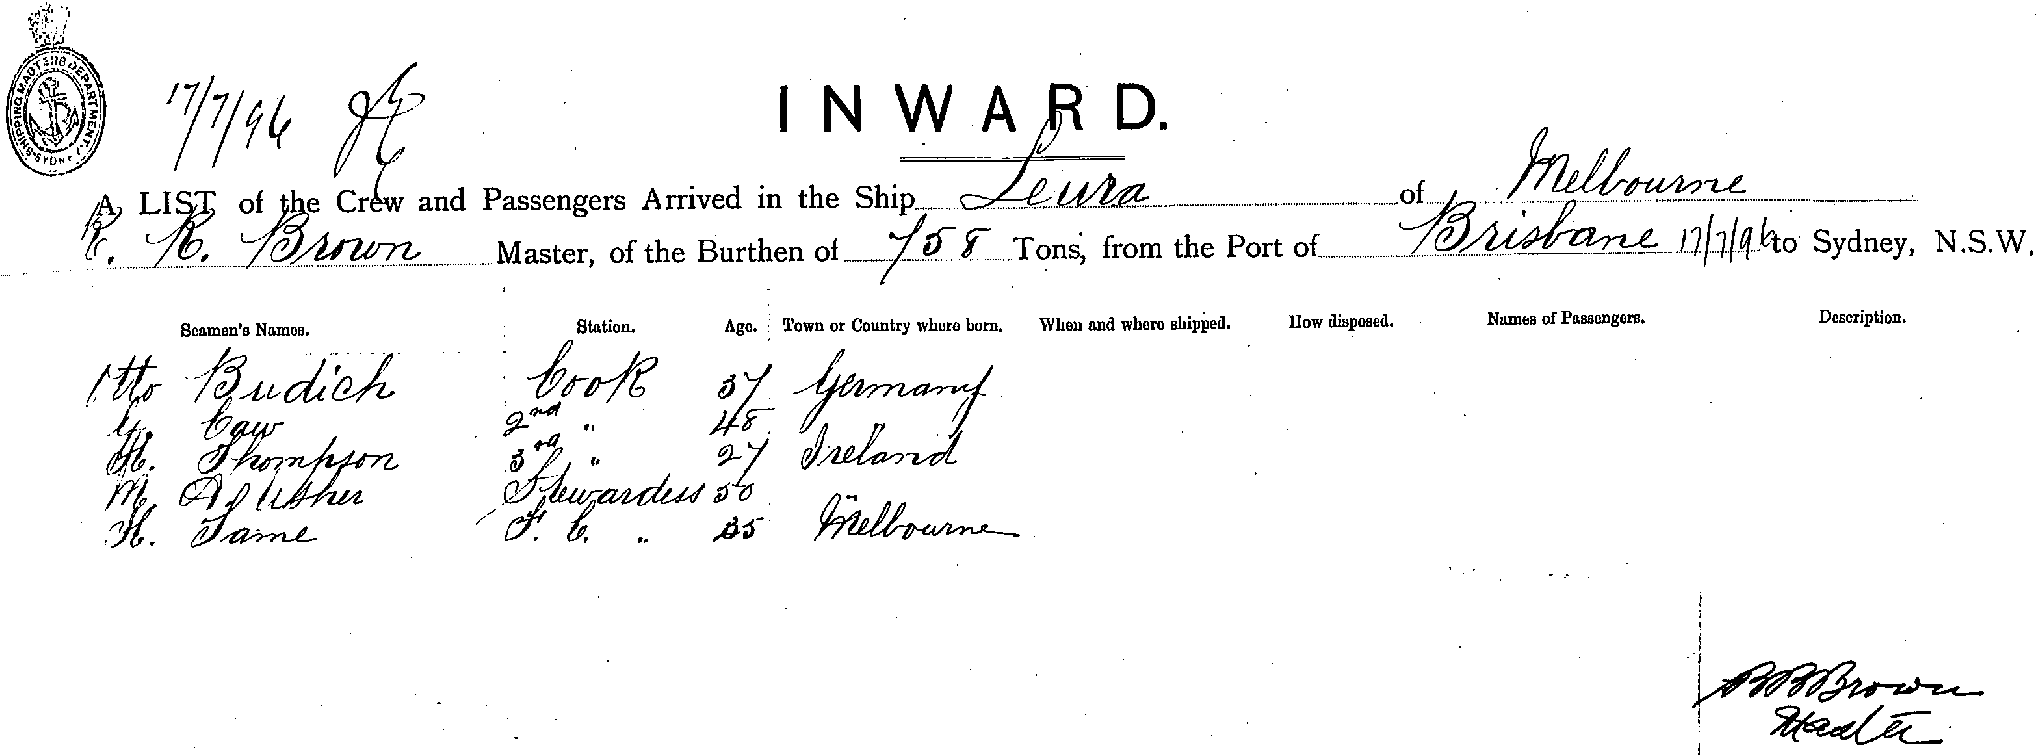 SHIPPING MASTER'S DEPARTMENT. SYDNEY
17/7/96
INWARD.
A LIST of the Crew and Passengers Arrived in the Ship Leura of Melbourne
R. R. Brown Master, of the Burthen of 758 Tons, from the Port of Brisbane 17/7/96 to Sydney, N.S.W.
Seamen's Names. Station. Age. Town or Country where born. When and where shipped. How disposed. Names of Passengers. Description.
Otto Budich Cook 37 Germany
Caw 2nd " 48 "
H. Thompson 3rd " 27 Ireland
M. Usher Stewardess 50 "
H. Tame F. C. " 35 Melbourne
Brown
Master